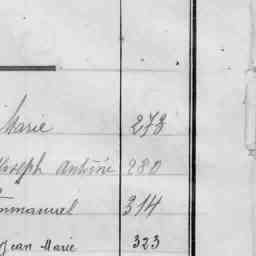 Marie 273
Joseph Antoine 280
Emmanuel 314
Jean Marie 323